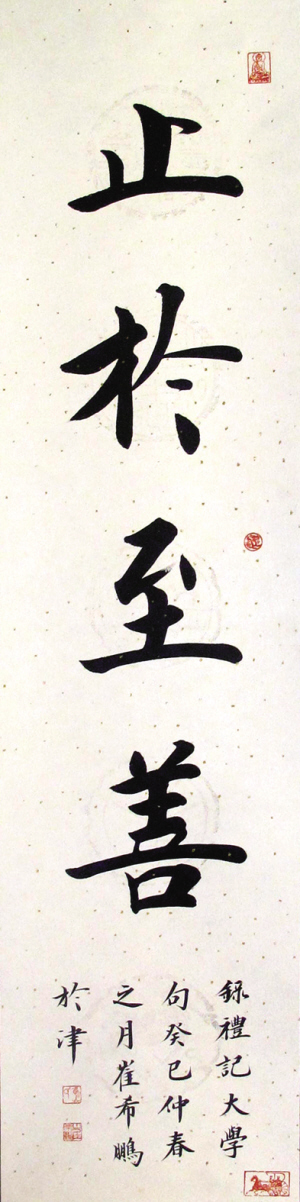 止於至善
録禮記大學
句癸巳仲春
之月崔希鵬
於津